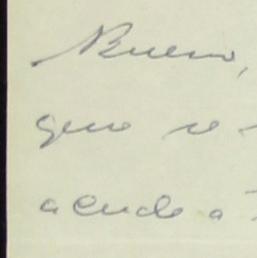 Bueno,
que re-
acude a